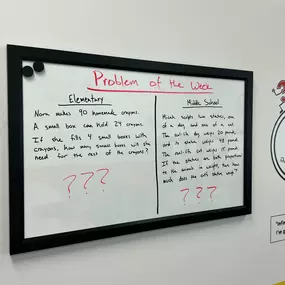 Problem of the Week
Elementary
Norm makes 90 homemade crayons.
A small box can hold 24 crayons.
If she fills 4 small boxes with
crayons, how many small boxes will she
need for the rest of the crayons?
???
Middle School
Micah sculpts two statues, one
of a dog and one of a cat.
The real-life dog weighs 20 pounds,
and its statue weighs 48 pounds.
The real-life cat weighs 15 pounds.
If the statues are both proportional
to the animals in weight, how
much does the cat's statue weigh?
???